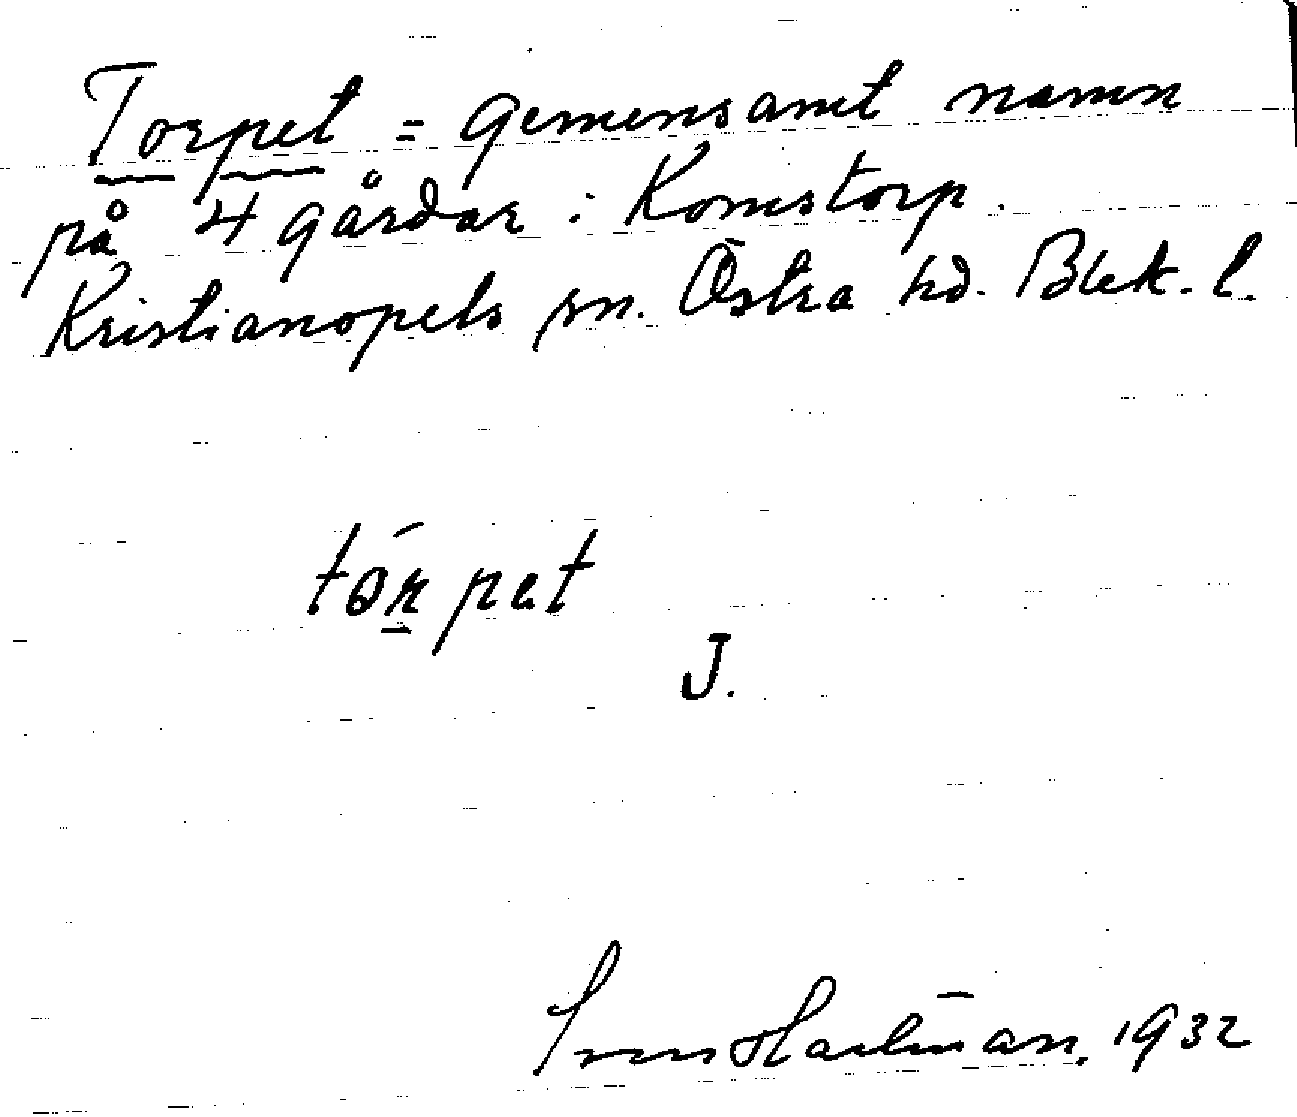 Torpet = gemensamt namn
på 4 gårdar i Komstorp.
Kristianopels sn. Östra hd. Blek. l.
tórpet
J.
Sven Hartman. 1932